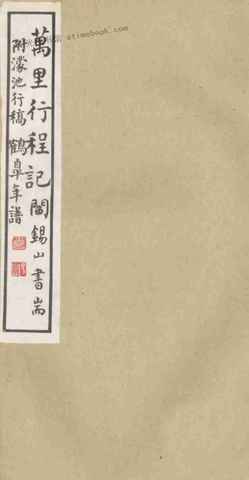 萬里行程記閻錫山書耑
附濛池行稿 鶴皐年譜